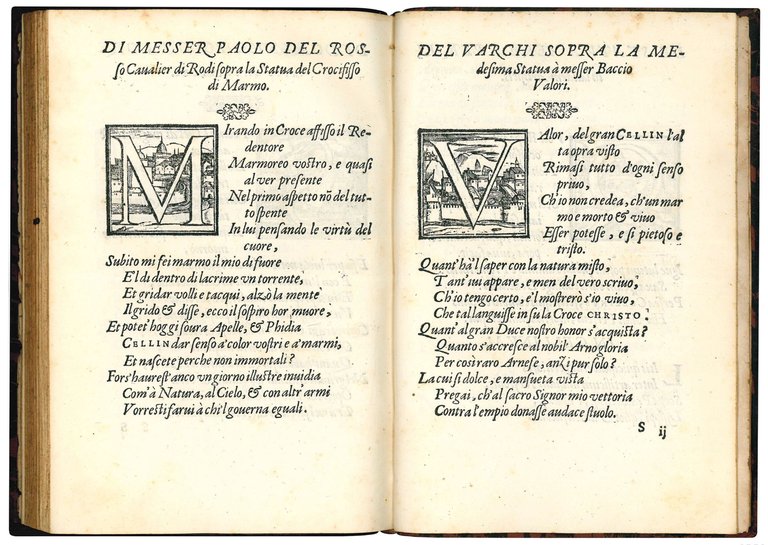 DI MESSER PAOLO DEL ROS-
so Caualier di Rodi sopra la Statua del Crocifisso
di Marmo.
MIrando in Croce affisso il Re
dentore
Marmoreo vostro, e quasi
al ver presente
Nel primo aspetto nō del tut-
to spente
In lui pensando le virtù del
cuore,
Subito mi fei marmo il mio di fuore
E'l di dentro di lacrime vn torrente,
Et gridar volli e tacqui, alzò la mente
Il grido & disse, ecco il sospiro hor muore,
Et potet' hoggi soura Apelle, & Phidia
CELLIN dar senso a' color vostri e a' marmi,
Et nascete perche non immortali?
Fors' haurest' anco vn giorno illustre inuidia
Com' à Natura, al Cielo, & con altr' armi
Vorresti farui à chi'l gouerna eguali.
DEL VARCHI SOPRA LA ME-
desima Statua à messer Baccio
Valori.
VAlor, del gran CELLIN l'al
ta opra visto
Rimasi tutto d'ogni senso
priuo,
Ch'io non credea, ch'un mar
mo e morto & viuo
Esser potesse, e si pietoso e
tristo.
Quant' hà'l saper con la natura misto,
Tant' iui appare, e men del vero scriuo,
Ch'io tengo certo, e'l mostrerò s'io viuo,
Che tal languisse in su la Croce CHRISTO.
Quant' al gran Duce nostro honor s'acquista?
Quanto s'accresce al nobil' Arno gloria
Per così raro Arnese, anzi pur solo?
La cui sì dolce, e mansueta vista
Pregai, ch'al sacro Signor mio vettoria
Contra l'empio donasse audace stuolo.
S ij